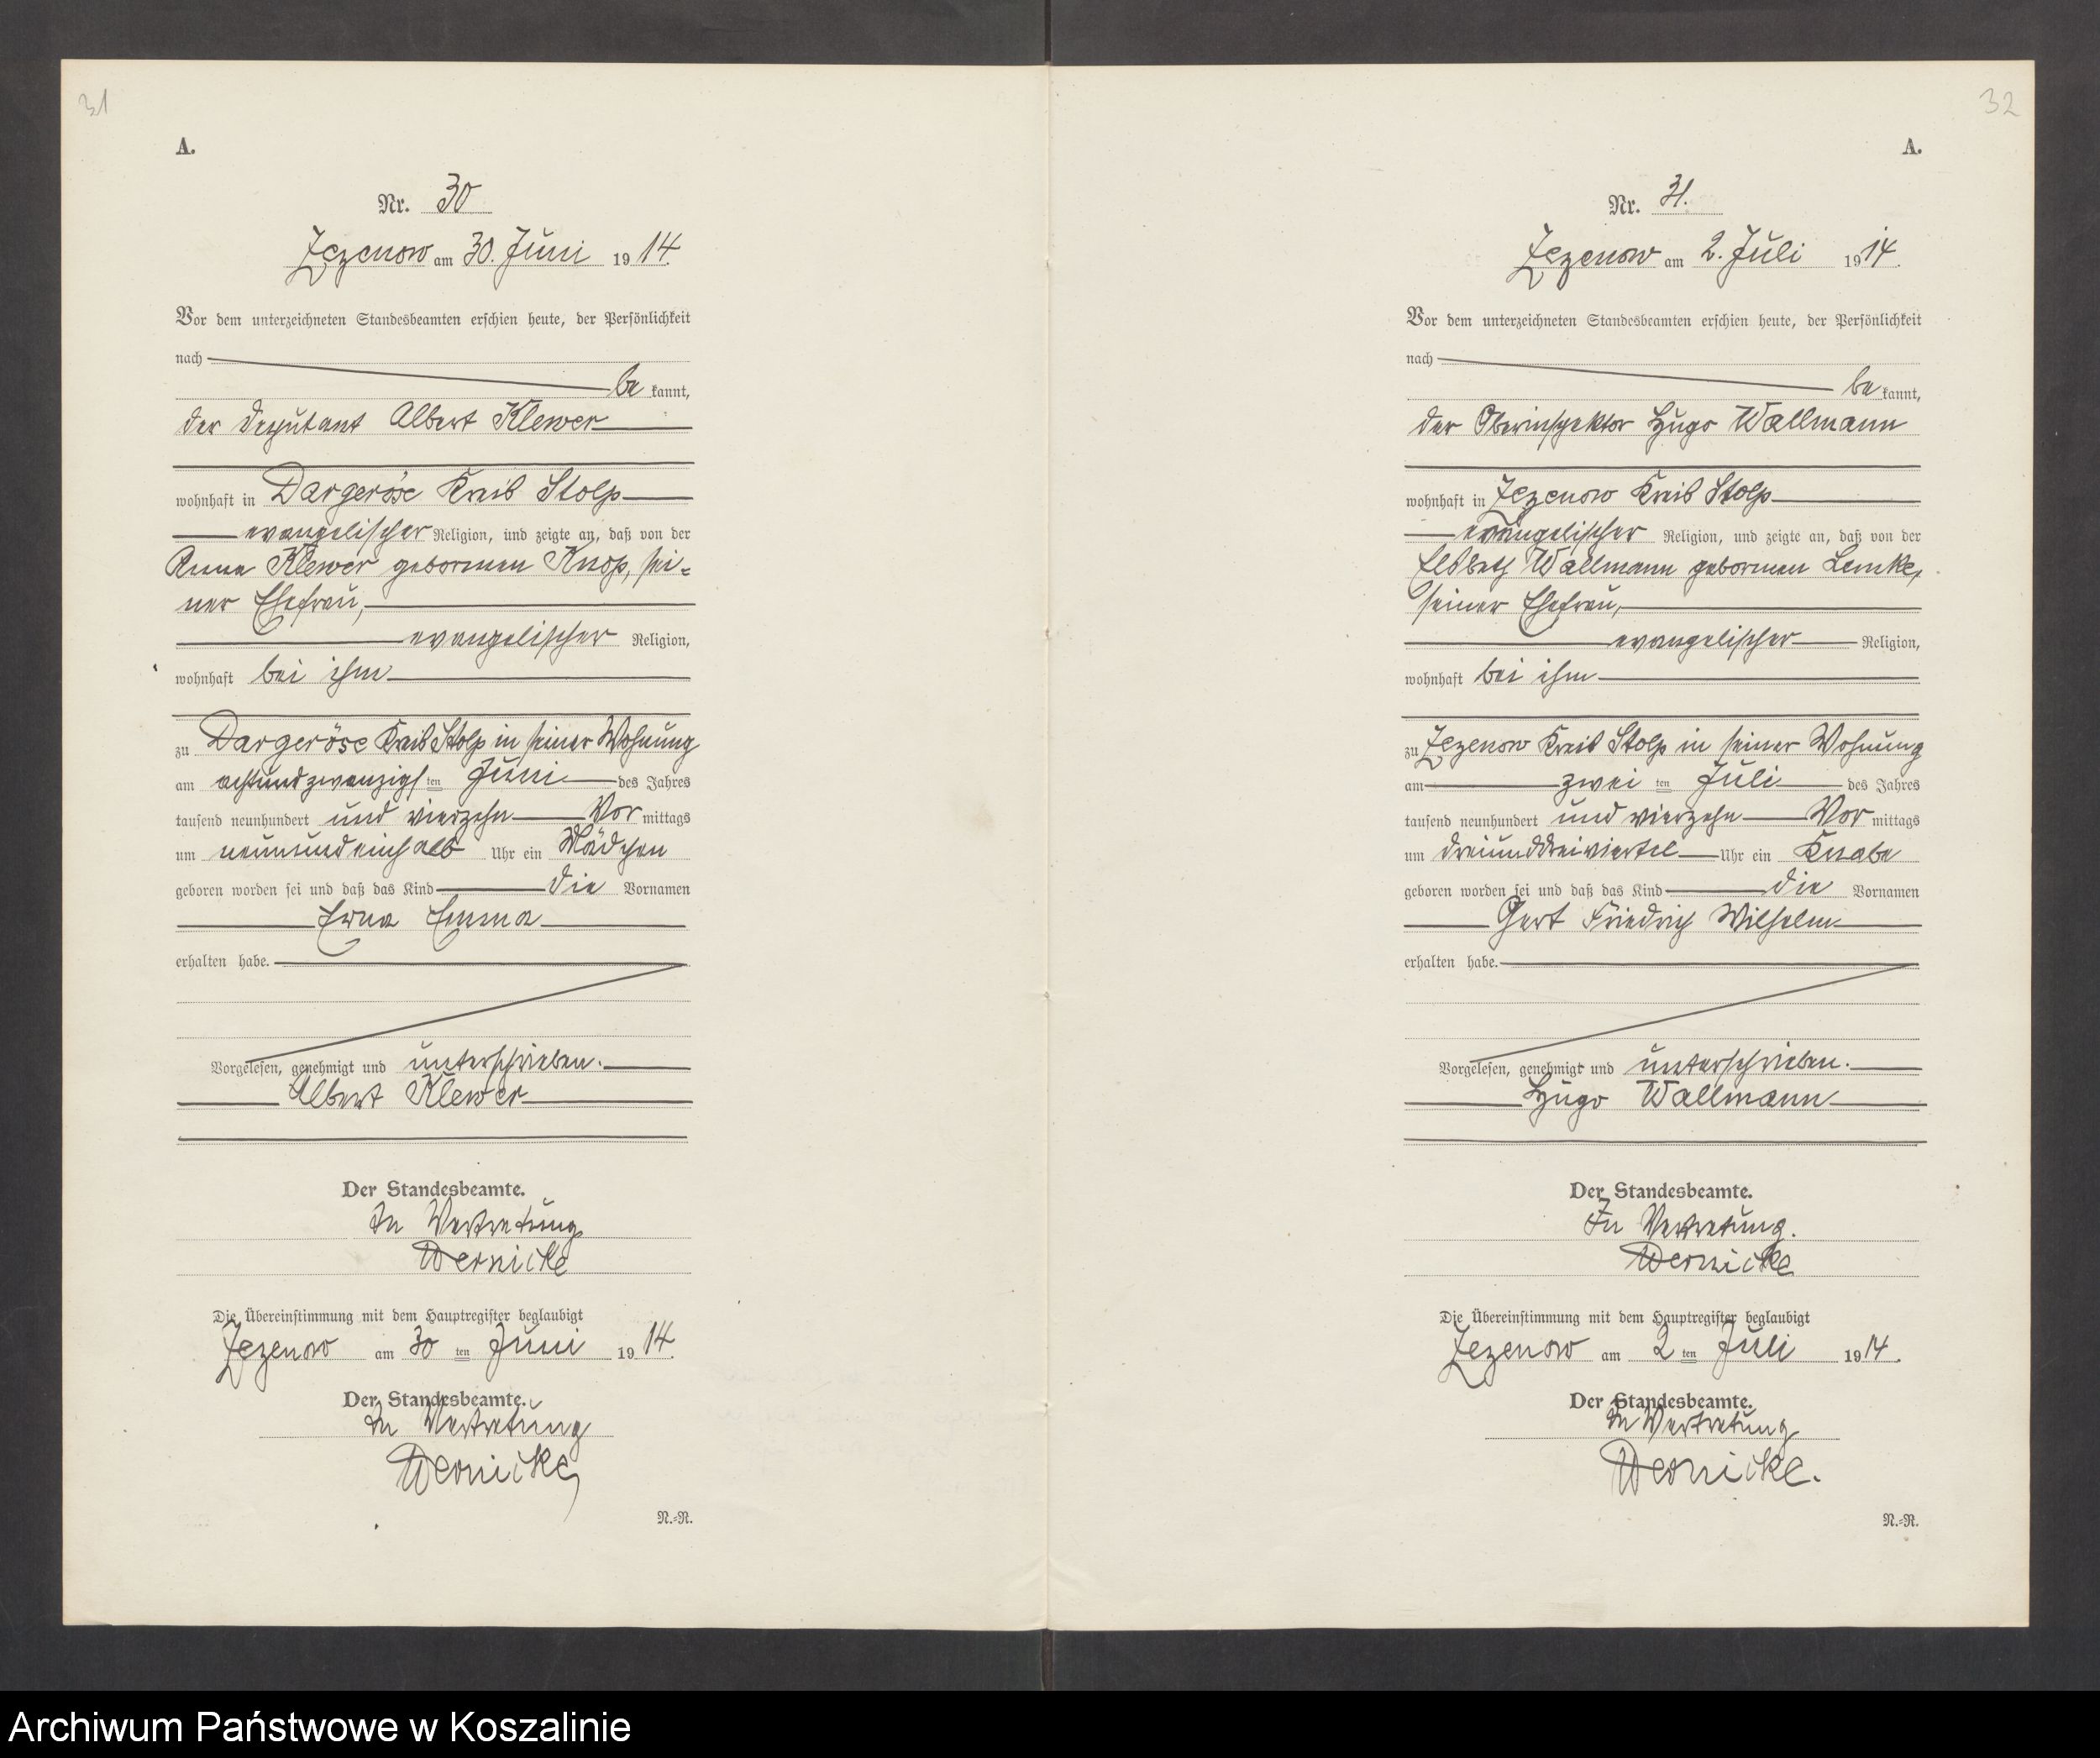 31
A.
Nr. 30
Zezenow am 30. Juni 1914.
Vor dem unterzeichneten Standesbeamten erschien heute, der Persönlichkeit
nach
be kannt,
der Deputant Albert Klewer
wohnhaft in Dargeröse Kreis Stolp
evangelischer Religion, und zeigte an, daß von der
Anna Klewer geborenen Knop, sei=
ner Ehefrau,
evangelischer Religion,
wohnhaft bei ihm
zu Dargeröse Kreis Stolp in seiner Wohnung
am achtundzwanzigsten Juni des Jahres
tausend neunhundert und vierzehn Vor mittags
um neunundeinhalb Uhr ein Mädchen
geboren worden sei und daß das Kind die Vornamen
Erna Emma
erhalten habe.
Vorgelesen, genehmigt und unterschrieben.
Albert Klewer
Der Standesbeamte.
In Vertretung
Wernicke
Die Übereinstimmung mit dem Hauptregister beglaubigt
Zezenow am 30 ten Juni 1914.
Der Standesbeamte.
In Vertretung
Wernicke
N.=R.
32
A.
Nr. 31.
Zezenow am 2. Juli 1914.
Vor dem unterzeichneten Standesbeamten erschien heute, der Persönlichkeit
nach
be kannt,
der Oberinspektor Hugo Wallmann
wohnhaft in Zezenow Kreis Stolp
evangelischer Religion, und zeigte an, daß von der
Elsbeth Wallmann geborenen Lemke,
seiner Ehefrau,
evangelischer Religion,
wohnhaft bei ihm
zu Zezenow Kreis Stolp in seiner Wohnung
am zwei ten Juli des Jahres
tausend neunhundert und vierzehn Vor mittags
um dreiunddreiviertel Uhr ein Knabe
geboren worden sei und daß das Kind die Vornamen
Gert Friedrich Wilhelm
erhalten habe.
Vorgelesen, genehmigt und unterschrieben.
Hugo Wallmann
Der Standesbeamte.
In Vertretung.
Wernicke
Die Übereinstimmung mit dem Hauptregister beglaubigt
Zezenow am 2 ten Juli 1914.
Der Standesbeamte.
In Vertretung
Wernicke.
N.=R.
Archiwum Państwowe w Koszalinie